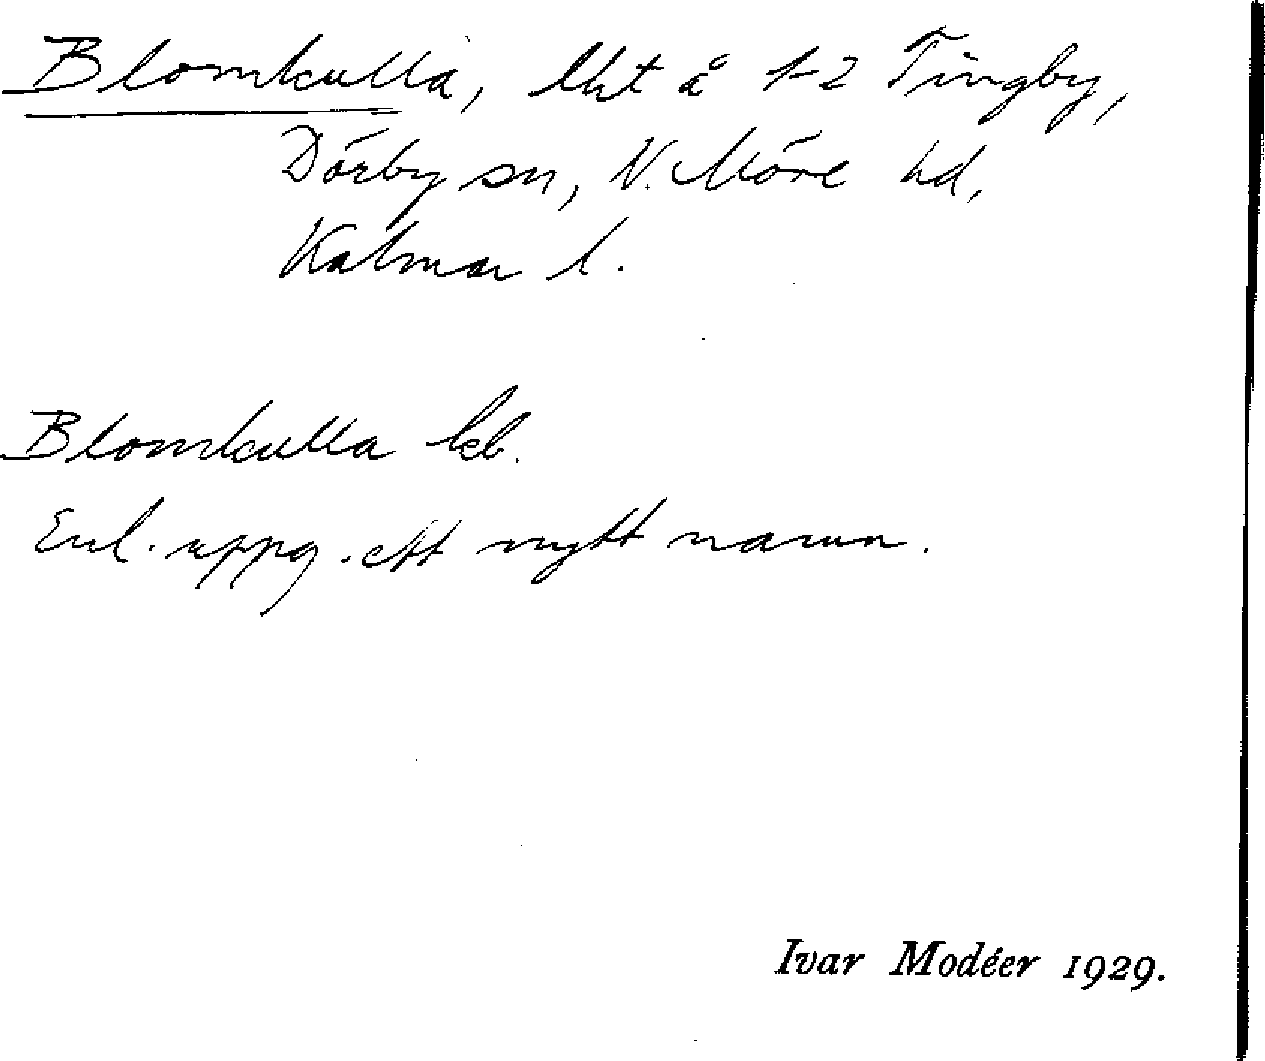 Blomkulla, lht å 1-2 Tingby,
Dörby sn, N. Möre hd,
Kalmar l.
Blomkulla kb.
Enl. uppg. ett nytt namn.
Ivar Modéer 1929.